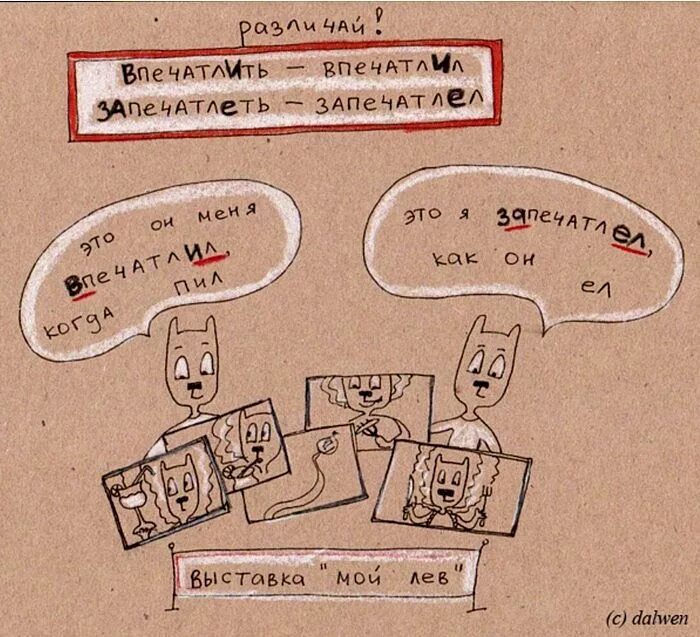 различай!
ВпечатлИть – впечатлИл
ЗАпечатлеть – запечатлел
это он меня
впечатлИл,
когда пил
это я запечатлел,
как он
ел
выставка "мой лев"
(c) dalwen